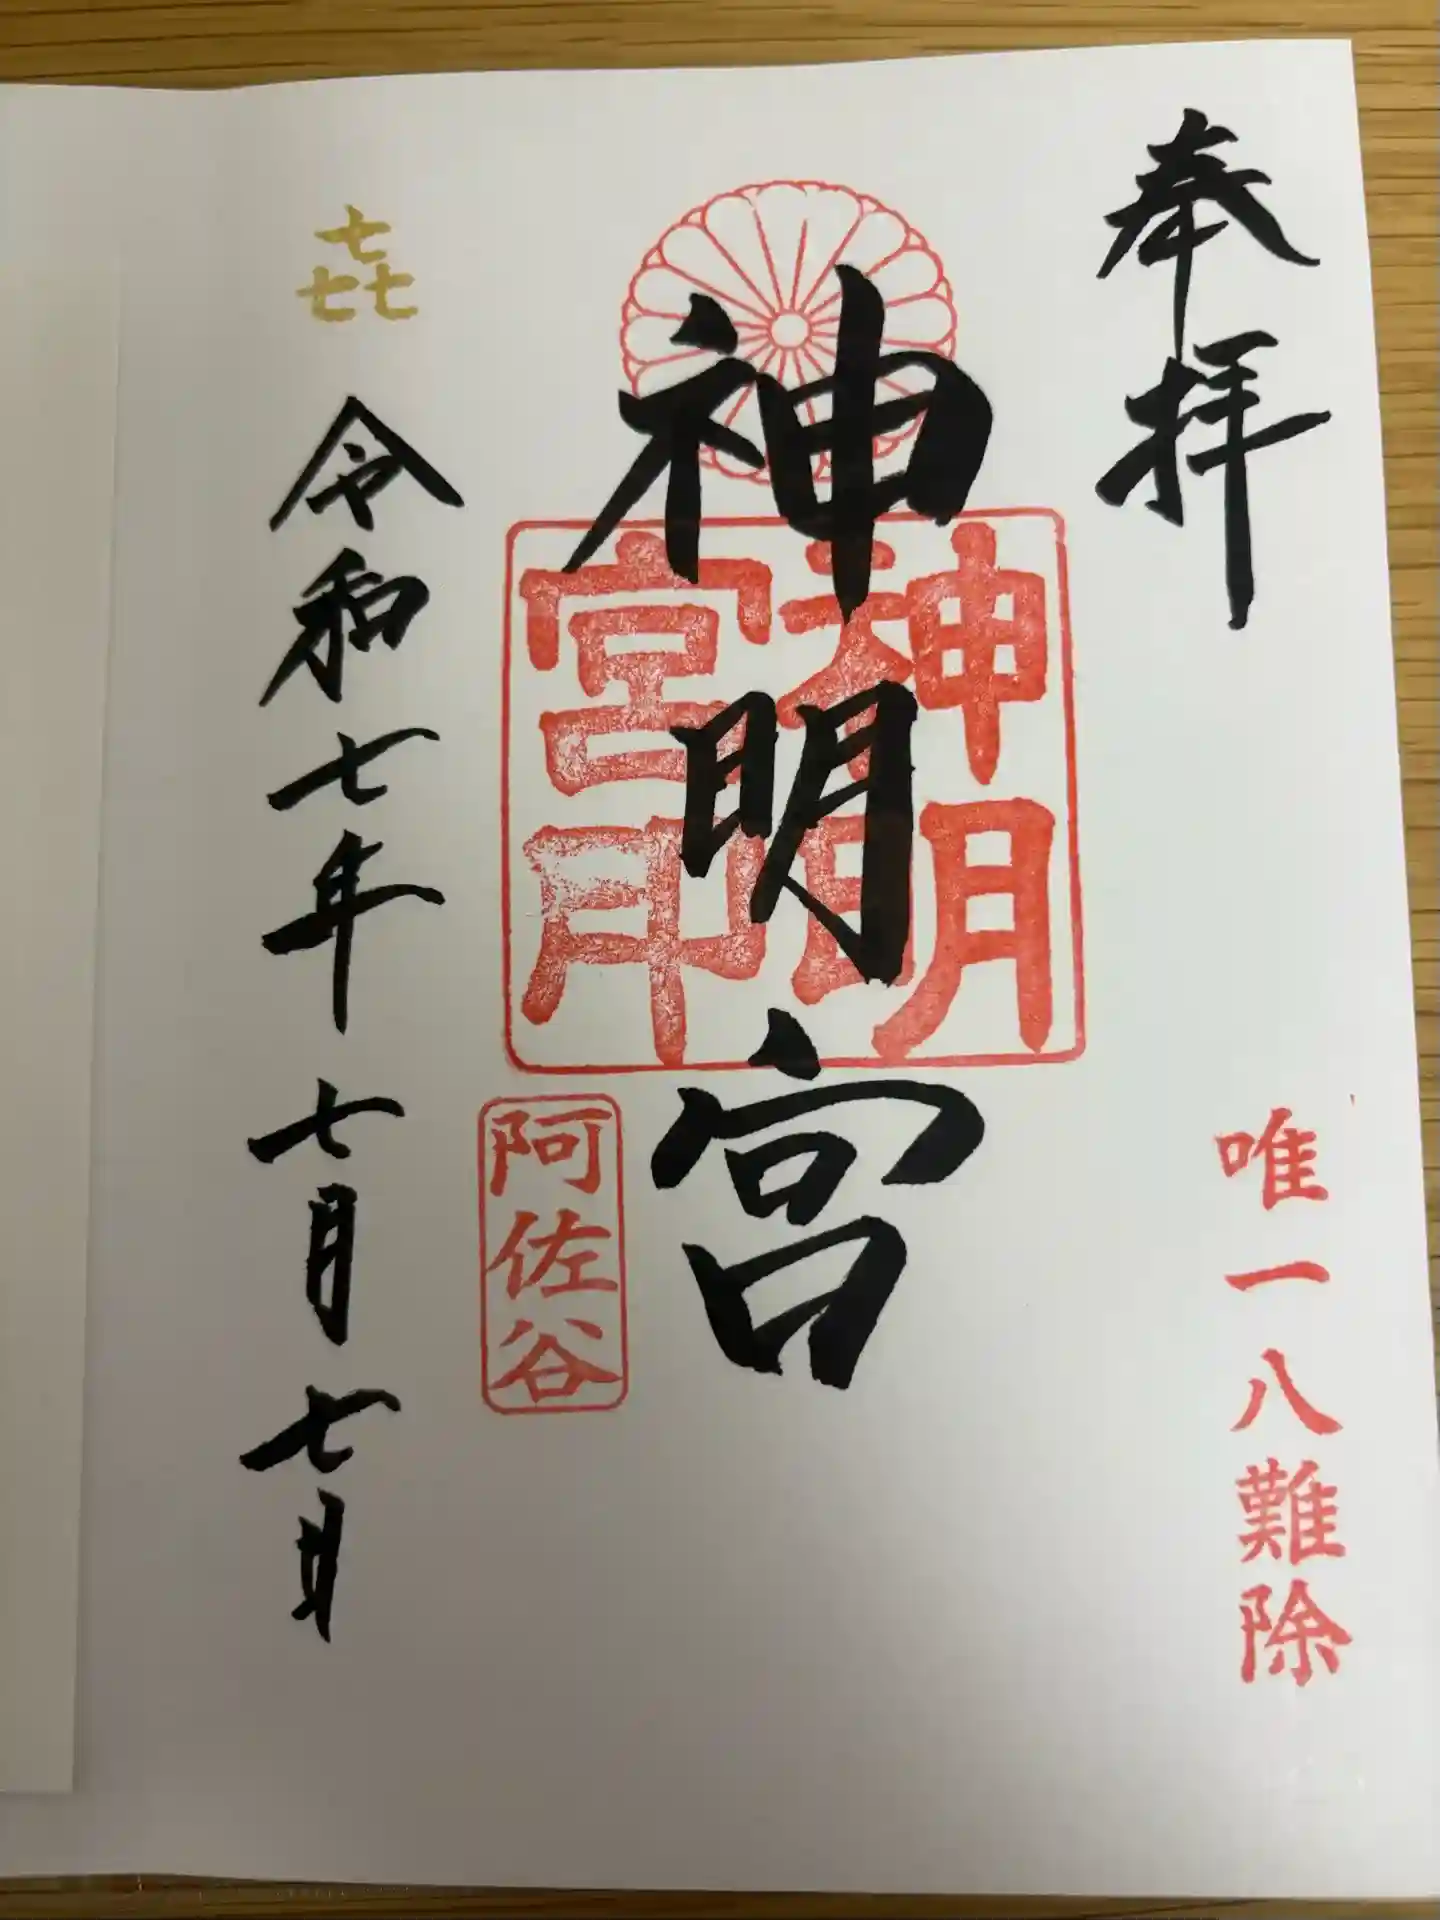 奉拝
唯一八難除
神明宮
神明
宮印
阿佐谷
㐂
令和七年七月七日